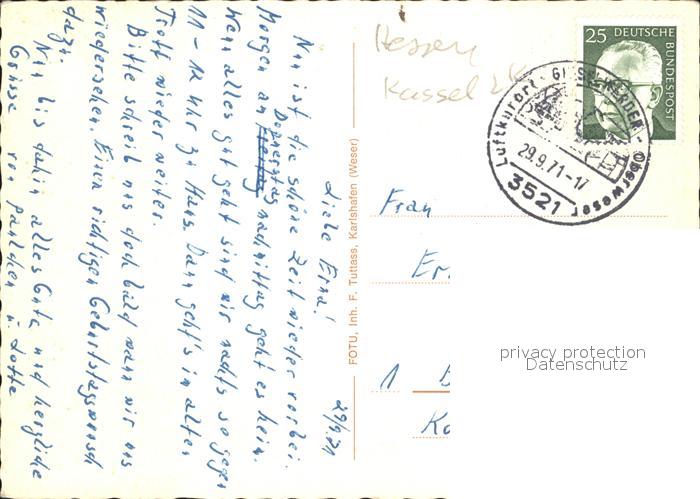 Hessen
Kassel LK
25 DEUTSCHE BUNDESPOST
Luftkurort · GIESELWERDER · Oberweser
29.9.71-17
3521
29/9.71
Liebe Erna!
Nun ist die schöne Zeit wieder vorbei.
Donnerstag
Morgen an Freitag nachmittag geht es heim.
Wenn alles gut geht sind wir nachts so gegen
11-12 Uhr zu Haus. Dann geht's im alten
Trott wieder weiter.
Bitte schreib uns doch bald wann wir uns
wiedersehen. Einen richtigen Geburtstagswunsch
dazu.
Nun bis dahin alles Gute und herzliche
Grüsse von u. Lotte
FOTU, Inh. F. Tuttass, Karlshafen (Weser)
Frau
Er.
1 B
Ko
privacy protection
Datenschutz